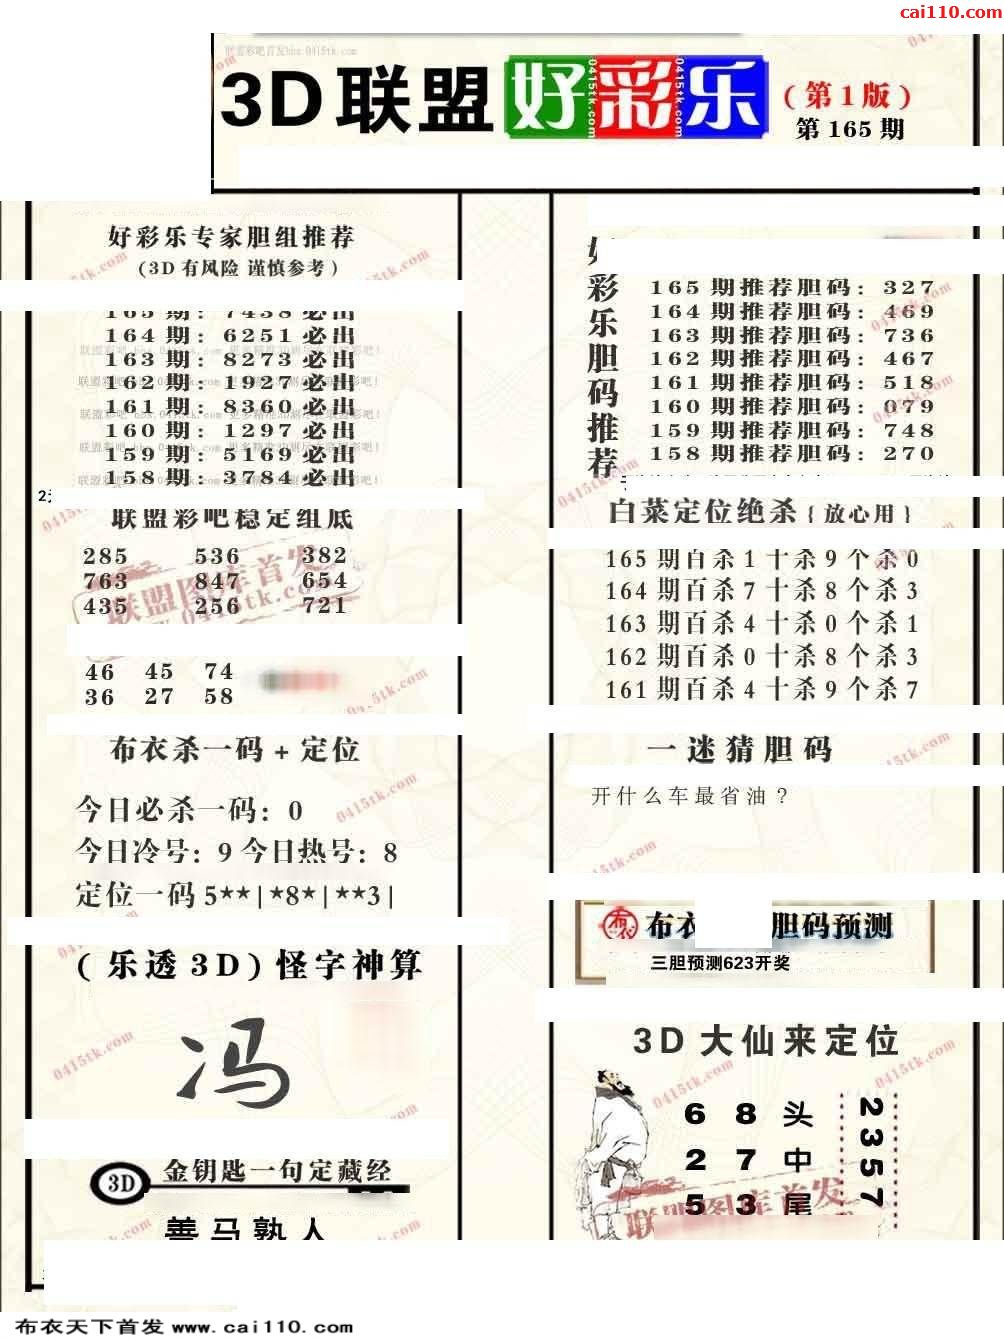 cai110.com
3D联盟 好彩乐 (第1版)
第165期
好彩乐专家胆组推荐
(3D有风险 谨慎参考)
165期: 7438必出
164期: 6251必出
163期: 8273必出
162期: 1927必出
161期: 8360必出
160期: 1297必出
159期: 5169必出
158期: 3784必出
联盟彩吧稳定组底
285 536 382
763 847 654
435 256 721
46 45 74
36 27 58
布衣杀一码+定位
今日必杀一码: 0
今日冷号: 9 今日热号: 8
定位一码 5**|*8*|**3|
(乐透3D)怪字神算
冯
3D 金钥匙一句定藏经
善马熟人
好彩乐胆码推荐
165期推荐胆码: 327
164期推荐胆码: 469
163期推荐胆码: 736
162期推荐胆码: 467
161期推荐胆码: 518
160期推荐胆码: 079
159期推荐胆码: 748
158期推荐胆码: 270
白菜定位绝杀{放心用}
165期百杀1十杀9个杀0
164期百杀7十杀8个杀3
163期百杀4十杀0个杀1
162期百杀0十杀8个杀3
161期百杀4十杀9个杀7
一迷猜胆码
开什么车最省油?
布衣 胆码预测
三胆预测623开奖
3D大仙来定位
6 8 头
2 7 中
5 3 尾
2357
联盟图库首发
0415tk.com
布衣天下首发 www.cai110.com